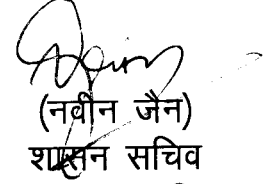 (नवीन जैन)
शासन सचिव